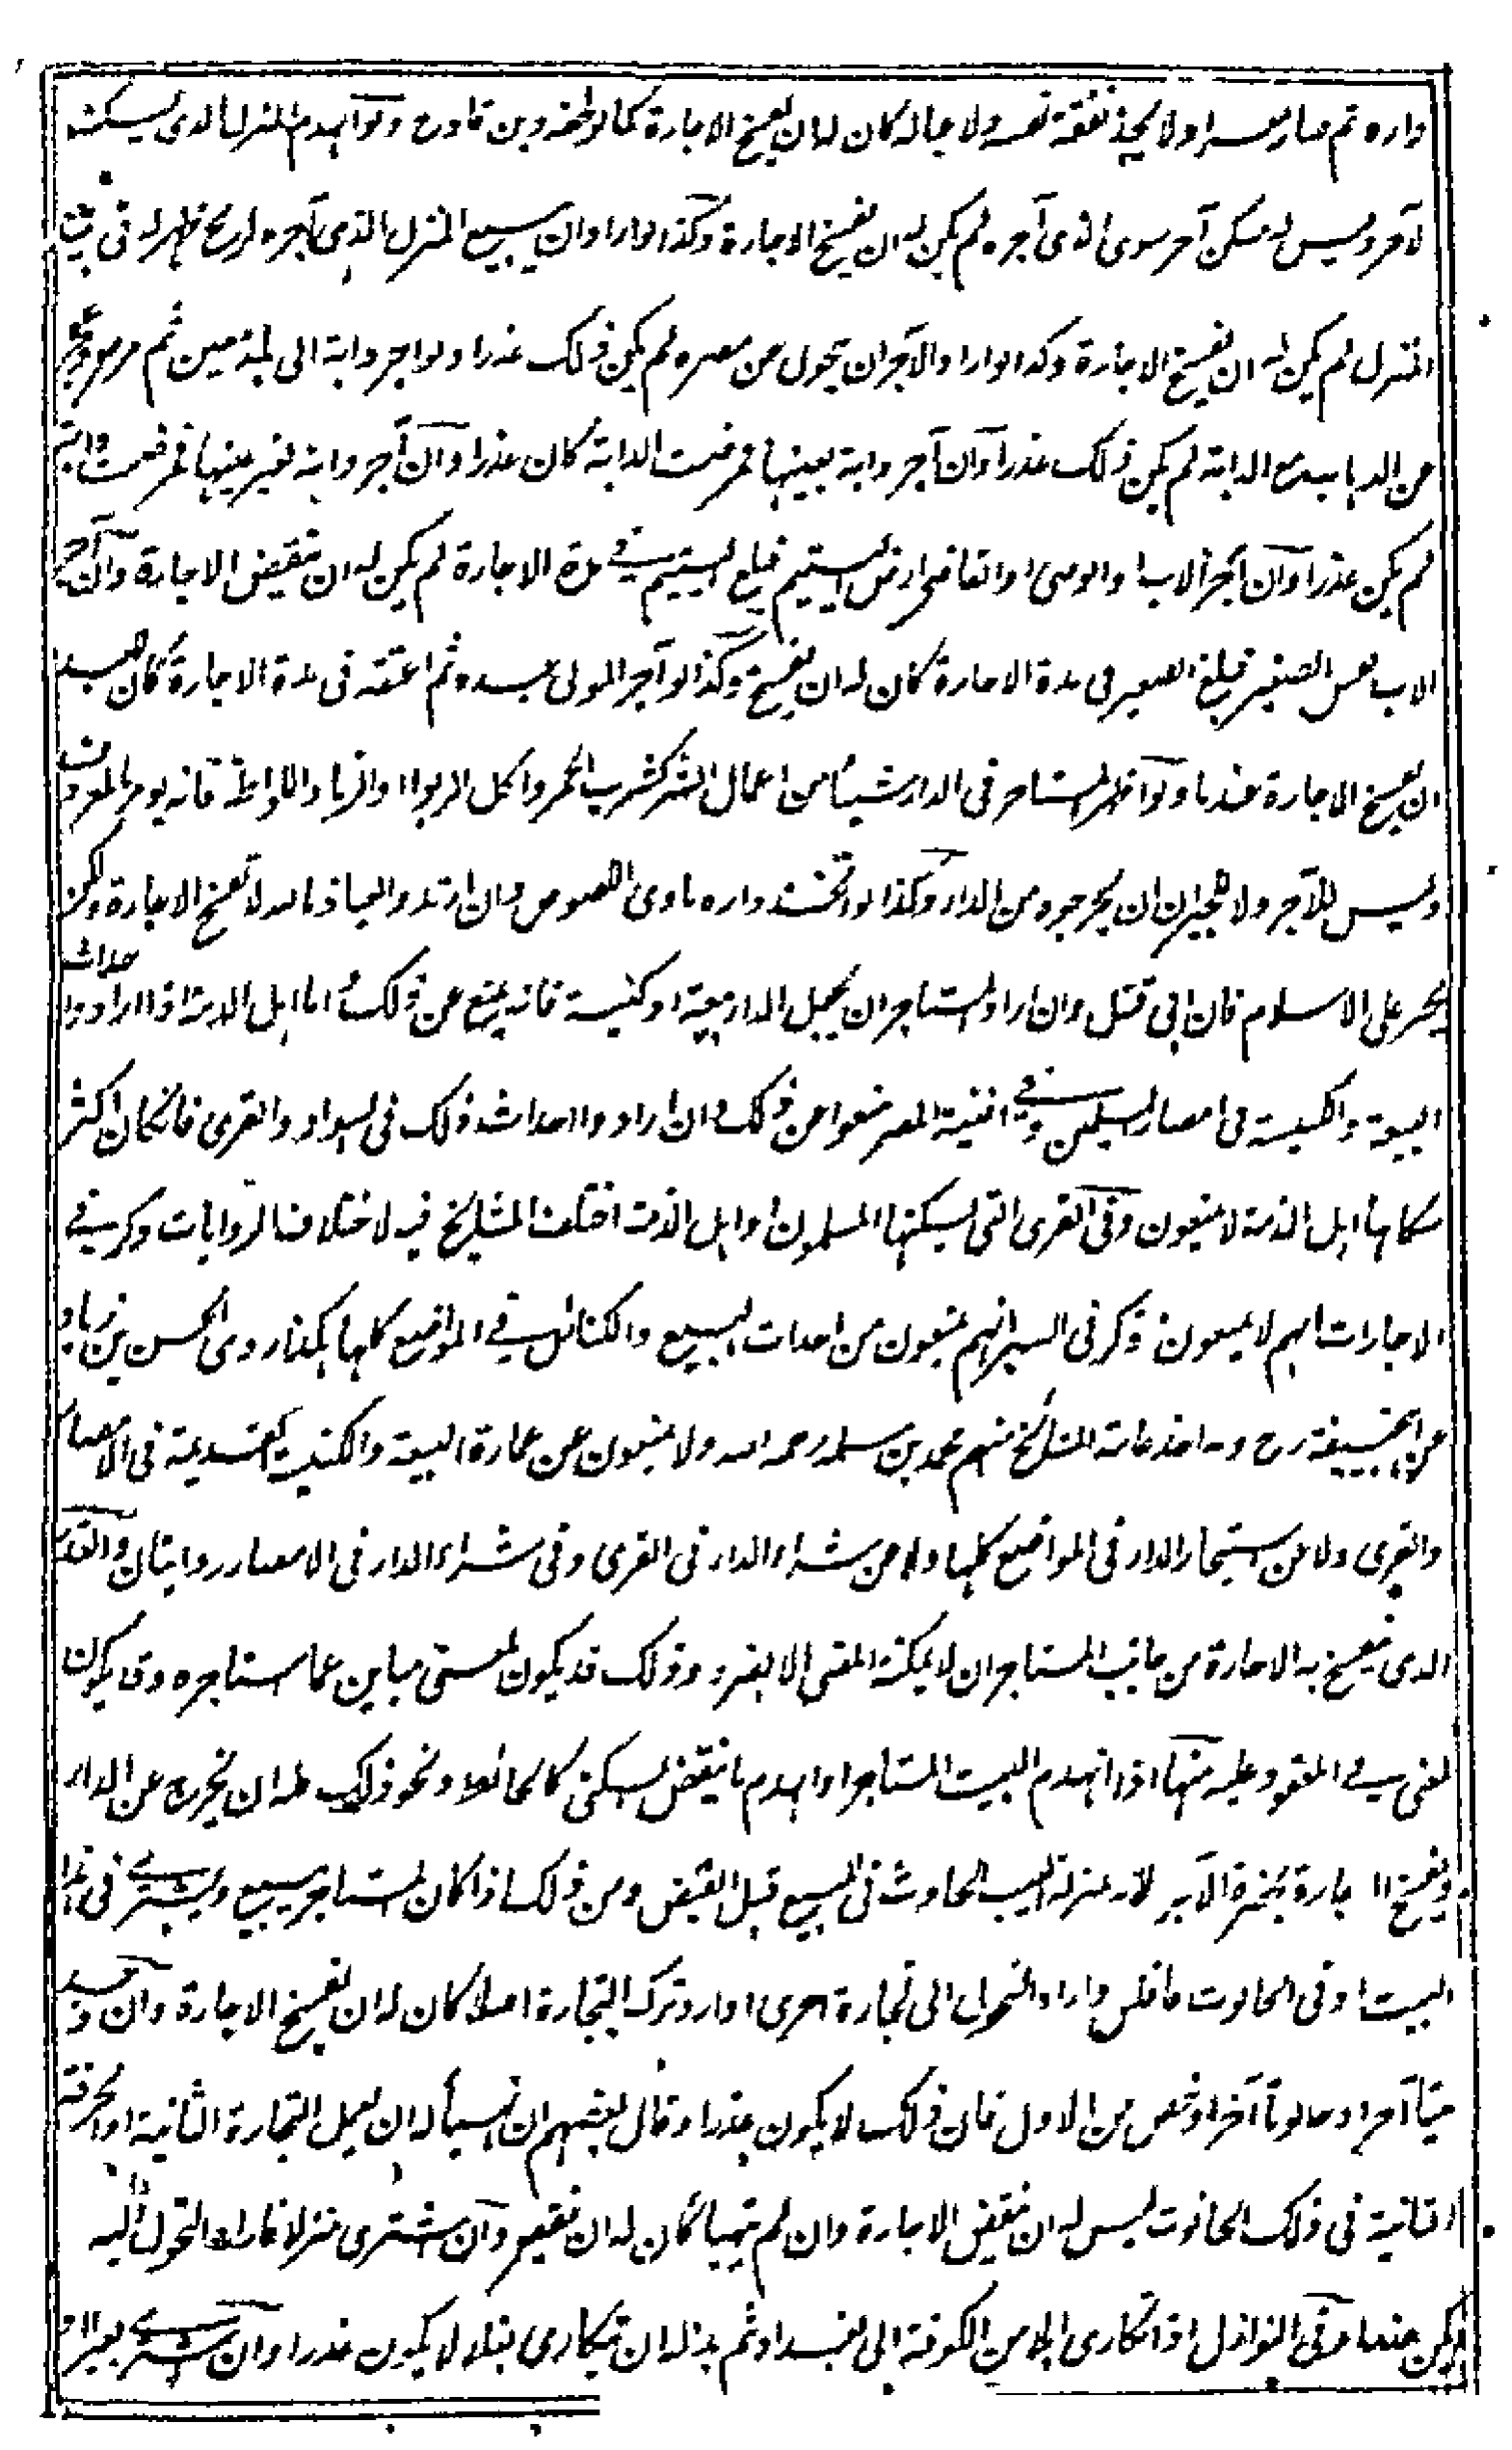 داره ثم صار معسرا ولا يجد نفقة نفسه ولا عياله كان له ان يفسخ الاجارة كما لو لحقه دين فادح ولو انهدم المنزل الذى يسكنه
الآجر وليس له مسكن آخر سوى الذى آجره لم يكن له ان يفسخ الاجارة وكذا لو اراد ان يبيع المنزل الذى آجره لربح ظهر له فى بيع
المنزل لم يكن له ان يفسخ الاجارة وكذا لو اراد الآجر ان يتحول عن مصره لم يكن ذلك عذرا ولو اجر دابة الى بلدة معين ثم مرض وعجز
عن الذهاب مع الدابة لم يكن ذلك عذرا وان آجر دابة بعينها فمرضت الدابة كان عذرا وان آجر دابة بغير عينها فمرضت دابته
لم يكن عذرا وان آجر الاب او الوصى او القاضى ارض اليتيم فبلغ اليتيم في مدة الاجارة لم يكن له ان ينقض الاجارة وان آجر
الاب نفس الصغير فبلغ الصغير فى مدة الاجارة كان له ان يفسخ وكذا لو آجر المولى عبده ثم اعتقه فى مدة الاجارة كان للعبد
ان يفسخ الاجارة عندنا ولو اظهر المستاجر فى الدار شيئا من اعمال الشر كشرب الخمر واكل الربوا والزنا واللواطة فانه يومر بالمعروف
وليس للآجر ولا للجيران ان يخرجوه من الدار وكذا لو اتخذ داره ماوى اللصوص وان ارتد والعياذ بالله لا تفسخ الاجارة ولكن
يجبر على الاسلام فان ابى قتل وان اراد المستاجر ان يجعل الدار بيعة او كنيسة فانه يمنع عن ذلك اما اهل الذمة اذا ارادوا احداث
البيعة والكنيسة فى امصار المسلمين وفي افنية المصر منعوا عن ذلك وان ارادوا احداث ذلك فى السواد والقرى فان كان اكثر
سكانها اهل الذمة لا يمنعون وفى القرى التى يسكنها المسلمون او اهل الذمة اختلف المشايخ فيه لاختلاف الروايات ذكر في
الاجارات انهم لا يمنعون وذكر فى السير انهم يمنعون من احداث البيع والكنائس في المواضع كلها هكذا روى الحسن بن زياد
عن ابيحنيفة رح وبه اخذ عامة المشايخ منهم محمد بن سلمة رحمه الله ولا يمنعون عن عمارة البيعة والكنيسة القديمة فى الامصار
والقرى ولا عن استيجار الدار فى المواضع كلها ولا عن شراء الدار فى القرى وفى شراء الدار فى الامصار روايتان والعذر
الذى يفسخ به الاجارة من جانب المستاجر ان لا يمكنه المضى الا بضرر وذلك قد يكون لمعنى مباين عما استاجره وقد يكون
لمعنى في المعقود عليه منها اذا انهدم البيت المستاجر او انهدم ما ينقض السكنى كالحائط ونحو ذلك فله ان يخرج عن الدار
ويفسخ الاجارة بحضرة الآجر لانه بمنزلة العيب الحادث فى المبيع قبل القبض ومن ذلك اذا كان المستاجر يبيع ويشترى فى هذا
البيت او فى الحانوت فافلس واراد التحول الى تجارة اخرى او اراد ترك التجارة اصلا كان له ان يفسخ الاجارة وان وجد
بيتا آخر او حانوتا آخر ارخص من الاول فان ذلك لا يكون عذرا وقال بعضهم ان تهيأ له ان يعمل التجارة الثانية او الحرفة
الثانية فى ذلك الحانوت ليس له ان ينقض الاجارة وان لم يتهيأ كان له ان ينقض وان اشترى منزلا فاراد التحول اليه
لم يكن عذرا وفى النوازل اذا تكارى ابلا من الكوفة الى بغداد ثم بدا له ان يتكارى بغلا لا يكون عذرا وان اشترى بعيرا او